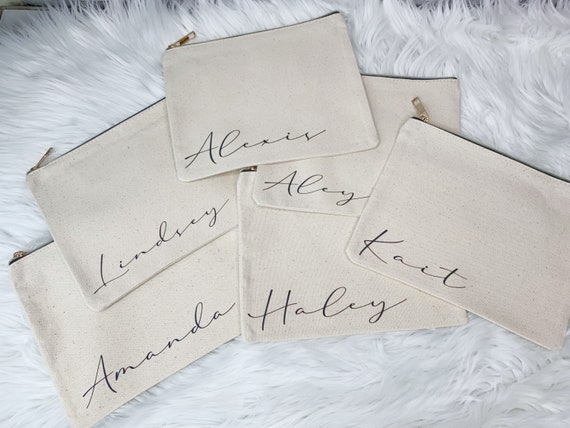 Alexis
Aley
Lindsey
Kait
Haley
Amanda